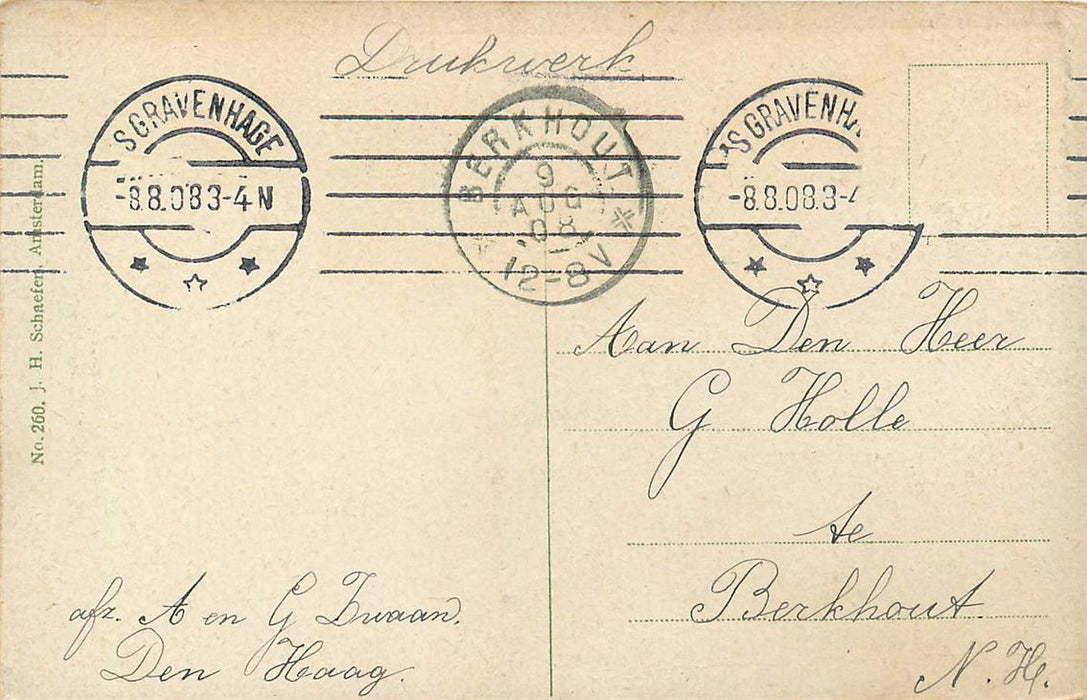 Drukwerk
'S GRAVENHAGE
-8.8.08 3-4 N
BERKHOUT
9
AUG
'08
12-8V
'S GRAVENHA
-8.8.08.3-4
No. 260. J. H. Schaefer, Amsterdam.
Aan Den Heer
G Holle
te
Berkhout.
N. H.
afz. A en G Zwaan.
Den Haag.